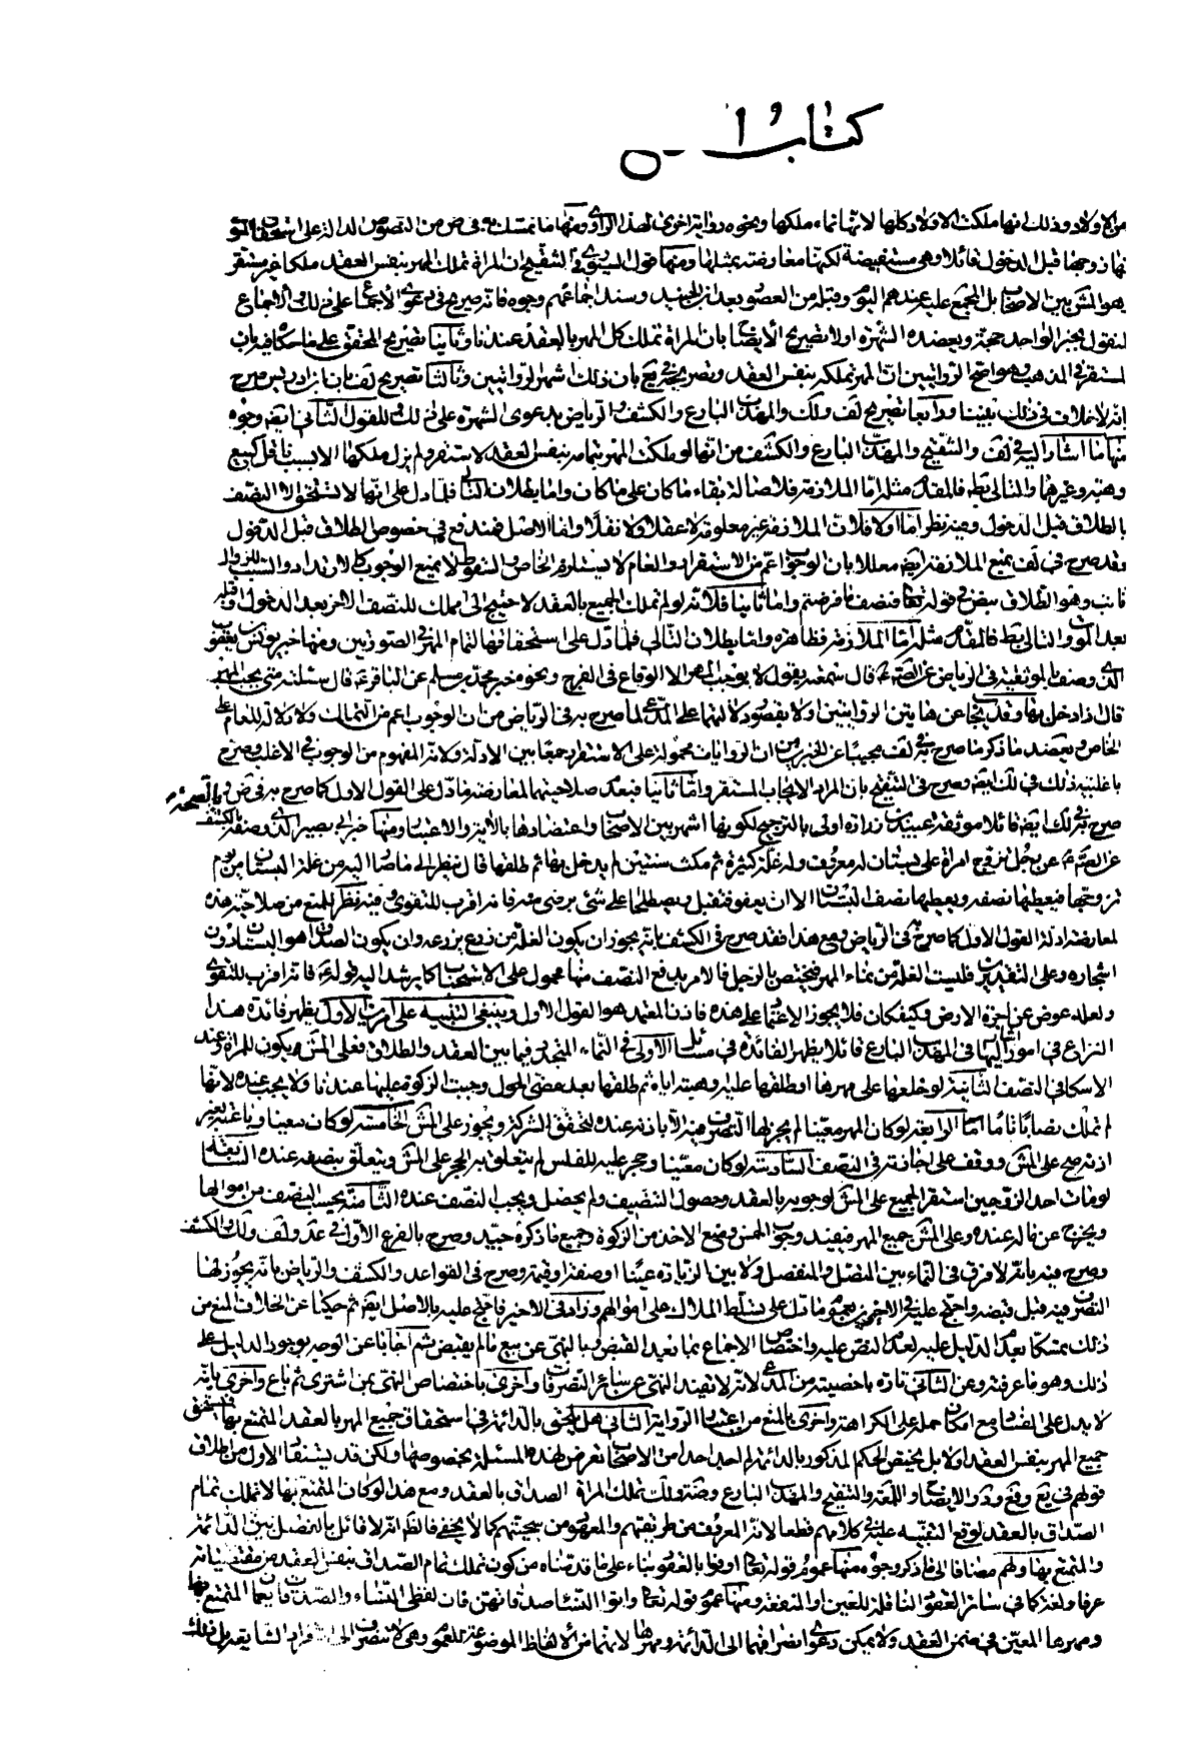 كتاب ا
من الاولاد وذلك انها ملكت الاولاد كلها لانها نماء ملكها ونحوه رواية اخرى لهذا الراوى ومنها ما تمسك به فى ض من النصوص الدالة على استحقاق
نها زوجها قبل الدخول قائلا وهى مستفيضة لكنها معارضة بمثلها ومنها قول السيورى فى التنقيح ان المراة تملك المهر بنفس العقد ملكا غير مستقر
هو المش بين الاصحاب بل المجمع عليه عندهم اليوم وقبله من العصور بعد ابن الجنيد وسند اجماعهم وجوه فانه صريح فى دعوى الاجماع على ذلك والاجماع
لمنقول بخبر الواحد حجة ويعضده الشهرة اولا تصريح الايضاح بان المراة تملك كل المهر بالعقد عندنا وثانيا تصريح المحقق على ما حكاه
لمستقر فى المذهب وهو اصح الروايتين ان المهر تملكه بنفس العقد وتصريح بان ذلك اشهر الروايتين وثالثا تصريح لف بان ابن ادريس صرح
انه لا خلاف فى ذلك بيننا ورابعا تصريح لف ولك والمهذب البارع والكشف والرياض بدعوى الشهرة على ذلك وللقول الثانى ايضا وجوه
منها ما اشار اليه فى لف والتنقيح والمهذب البارع والكشف من انها لو ملكت المهر بتمامه بنفس العقد لاستقر ولم يزل ملكها الا بسبب ناقل كبيع
وهبة وغيرهما والتالى بط فالمقدم مثله اما الملازمة فلاصالة بقاء ما كان على ما كان واما بطلان التالى فلما دل على انها لا تستحق الا النصف
بالطلاق قبل الدخول وفيه نظر اما اولا فلان الملازمة غير معلومة لا عقلا ولا نقلا واما الاصل فمندفع فى خصوص الطلاق قبل الدخول
وقد صرح فى لف بمنع الملازمة ايضا معللا بان الوجوب اعم من الاستقرار والعام لا يستلزم الخاص والسقوط لا يمنع الوجوب كالارتداد والسبب
ثابت وهو الطلاق بنص فى قوله تعالى فنصف ما فرضتم واما ثانيا فلانه لو لم تملك الجميع بالعقد لاحتيج الى مملك للنصف الاخر بعد الدخول وقبله
بعد الموت والتالى بط فالمقدم مثله اما الملازمة فظاهرة واما بطلان التالى فلما دل على استحقاقها لتمام المهر فى الصورتين ومنها خبر يونس بن يعقوب
الذى وصف بالموثقية فى الرياض عن الصادق ع قال سمعته يقول لا يوجب المهر الا الوقاع فى الفرج ونحوه خبر محمد بن مسلم عن الباقر ع قال سئلته متى يجب المهر
قال اذا دخل بها وقد يجاب عن هاتين الروايتين اولا بقصور دلالتهما على المدعى لما صرح به فى الرياض من ان الوجوب اعم من التملك ولا دلالة للعام على
الخاص ويعضد ما ذكر ما صرح به فى لف مجيبا عن الخبرين من ان الروايات محمولة على الاستقرار جمعا بين الادلة ولانه المفهوم من الوجوب فى الاغلب وصرح
باغلبية ذلك فى لك ايضا وصرح فى التنقيح بان المراد الايجاب المستقر واما ثانيا فبعدم صلاحيتهما لمعارضة ما دل على القول الاول كما صرح به فى ض
صرح فى لك ايضا قائلا موثقة عبيد بن زرارة اولى بالترجيح لكونها اشهر بين الاصحاب واعتضادها بالايتين والاعتبار ومنها خبر ابى بصير الذى وصف فى الكشف بالصحة
عن الصادق ع عن رجل تزوج امراة على بستان له معروف وله غلة كثيرة ثم مكث سنتين لم يدخل بها ثم طلقها قال ينظر الى ما صار اليه من غلة البستان من يوم
تزوجها فيعطيها نصفه ويعطيها نصف البستان الا ان يعفو فتقبل ويصطلحا على شئ برضى منه فانه اقرب للتقوى وفيه نظر للمنع من صلاحية هذه
لمعارضة ادلة القول الاول كما صرح به فى الرياض ومع هذا فقد صرح فى الكشف بانه يجوز ان يكون الغلة من زرع يزرعه وان يكون الصداق هو البستان دون
اشجاره وعلى التقديرين فليست الغلة من نماء المهر فتختص بالرجل فالامر بدفع النصف منها محمول على الاستحباب كما يرشد اليه قوله ع فانه اقرب للتقوى
ولعله عوض عن اجرة الارض وكيف كان فلا يجوز الاعتماد على هذه فاذن المعتمد هو القول الاول وينبغى التنبيه على امرين الاول يظهر فائدة هذا
النزاع فى امور اشار اليها فى المهذب البارع قائلا يظهر الفائدة فى مسائل الاولى فى النماء المتجدد فيما بين العقد والطلاق فعلى المش يكون للمراة وعند
الاسكافى النصف الثانية لو خلعها على مهرها او طلقها عليه او وهبته اياه ثم طلقها بعد مضى الحول وجبت الزكوة عليها عندنا ولا يجب عنده لانها
لم تملك نصابا تاما اما الرابعة لو كان المهر معينا لم يجز لها التصرف فيه الا باذنه عنده لتحقق الشركة ويجوز على المش الخامسة لو كان معينا وباعته بغير
اذنه صح على المش ووقف على اجازته فى النصف السادسة لو كان معينا وحجر عليه للفلس لم يتعلق به الحجر على المش ويتعلق بنصفه عنده السابعة
لو مات احد الزوجين استقر الجميع على المش لوجوبه بالعقد وحصول التنصيف ولم يحصل ويجب النصف عنده الثامنة يحسب النصف من اموالها
ويخرج عن ماله عنده وعلى المش جميع المهر فيفيد وجوب الخمس ومنع الاخذ من الزكوة وجميع ما ذكره جيد وصرح بالفرع الاول فى عد ولف ولك والكشف
وصرح فيه بانه لا فرق فى النماء بين المتصل والمنفصل ولا بين الزيادة عينا او صفة او قيمة وصرح فى القواعد والكشف والرياض بانه يجوز لها
التصرف فيه قبل قبضه واحتج عليه فى الاخيرين بعموم ما دل على تسلط الملاك على اموالهم وزاد فى الاخير فاحتج عليه بالاصل ايضا ثم حكيا عن الخلاف المنع من
ذلك متمسكا بعدم الدليل عليه لعدم النص عليه واختصاص الاجماع بما بعد القبض وبالنهى عن بيع ما لم يقبض ثم اجابا عن الوجه بوجود الدليل على
ذلك وهو ما عرفته وعن الثانى تارة باخصيته من المدعى لانه لا يفيد النهى عن سائر التصرفات واخرى باختصاص النهى بمن اشترى ثم باع واخرى بانه
لا يدل على الفساد مع امكان حمله على الكراهة واخرى بالمنع من اعتبار الرواية الثانى هل يلحق بالدائمة فى استحقاق جميع المهر بالعقد المتمتع بها فتستحق
جميع المهر بنفس العقد او لا بل يختص الحكم المذكور بالدائمة لم اجد احدا من الاصحاب تعرض لهذه المسئلة بخصوصها ولكن قد يستفاد الاول من اطلاق
قولهم فى يع وفع ود والايضاح واللمعة والتنقيح والمهذب البارع وضة ولك تملك المراة الصداق بالعقد ومع هذا لو كان المتمتع بها لا تملك تمام
الصداق بالعقد لوقع التنبيه عليه فى كلامهم قطعا لانه المعروف من طريقتهم والمعهود من سجيتهم كما لا يخفى فالظ انه لا قائل بالفصل بين الدائمة
والمتمتع بها ولهم مضافا الى ما ذكر وجوه منها عموم قوله تعالى اوفوا بالعقود بناء على ما قدمناه من كون تملك تمام الصداق بنفس العقد من مقتضياته
عرفا ولغة كما فى سائر العقود الناقلة للعين او المنفعة ومنها عموم قوله تعالى واتوا النساء صدقاتهن فان لفظى النساء والصدقات يعمان المتمتع بها
ومهرها المعين فى ضمن العقد ولا يمكن دعوى انصرافهما الى الدائمة ومهرها لانهما من الالفاظ الموضوعة للعموم وهى لا تنصرف